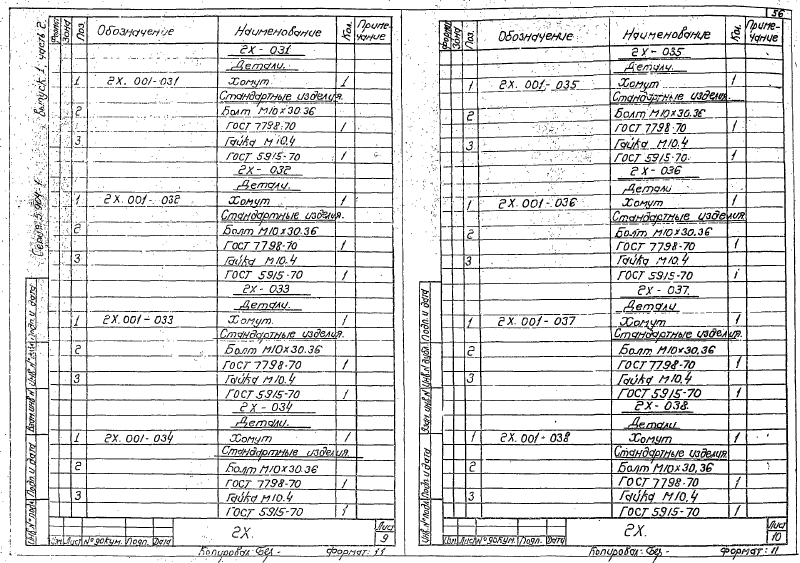 Выпуск 1, часть 2.
Формат Зона Поз. Обозначение Наименование Кол. Примечание
2Х-031
Детали.
1 2Х. 001-031 Хомут 1
Стандартные изделия.
2 Болт М10х30.36
ГОСТ 7798-70 1
3 Гайка М10.4
ГОСТ 5915-70 1
2Х-032
Детали.
1 2Х.001-032 Хомут 1
Стандартные изделия.
2 Болт М10х30.36
ГОСТ 7798-70 1
3 Гайка М10.4
ГОСТ 5915-70 1
2Х-033
Детали.
1 2Х.001-033 Хомут. 1
Стандартные изделия.
2 Болт М10х30.36
ГОСТ 7798-70 1
3 Гайка М10.4
ГОСТ 5915-70 1
2Х-034
Детали.
1 2Х.001-034 Хомут 1
Стандартные изделия
2 Болт М10х30.36
ГОСТ 7798-70 1
3 Гайка М10.4
ГОСТ 5915-70 1
Изм. Лист № докум. Подп. Дата
2Х.
Лист
9
Копировал: Бег.- Формат: 11
56
Формат Зона Поз. Обозначение Наименование Кол. Примечание
2Х-035
Детали.
1 2Х.001-035 Хомут 1
Стандартные изделия.
2 Болт М10х30.36
ГОСТ 7798-70 1
3 Гайка М10.4
ГОСТ 5915-70. 1
2Х-036
Детали
1 2Х.001-036 Хомут 1
Стандартные изделия
2 Болт М10х30.36
ГОСТ 7798-70 1
3 Гайка М10.4
ГОСТ 5915-70 1
2Х-037.
Детали
1 2Х.001-037 Хомут 1
Стандартные изделия.
2 Болт М10х30.36
ГОСТ 7798-70 1
3 Гайка М10.4
ГОСТ 5915-70 1
2Х-038.
Детали
1 2Х.001-038 Хомут 1
Стандартные изделия
2 Болт М10х30.36
ГОСТ 7798-70 1
3 Гайка М10.4
ГОСТ 5915-70 1
Изм. Лист № докум. Подп. Дата
2Х.
Лист
10
Копировал: Бег.- Формат: 11
Инв. № подл. Подп. и дата Взам. инв. № Инв. № дубл. Подп. и дата
Инв. № подл. Подп. и дата Взам. инв. № Инв. № дубл. Подп. и дата